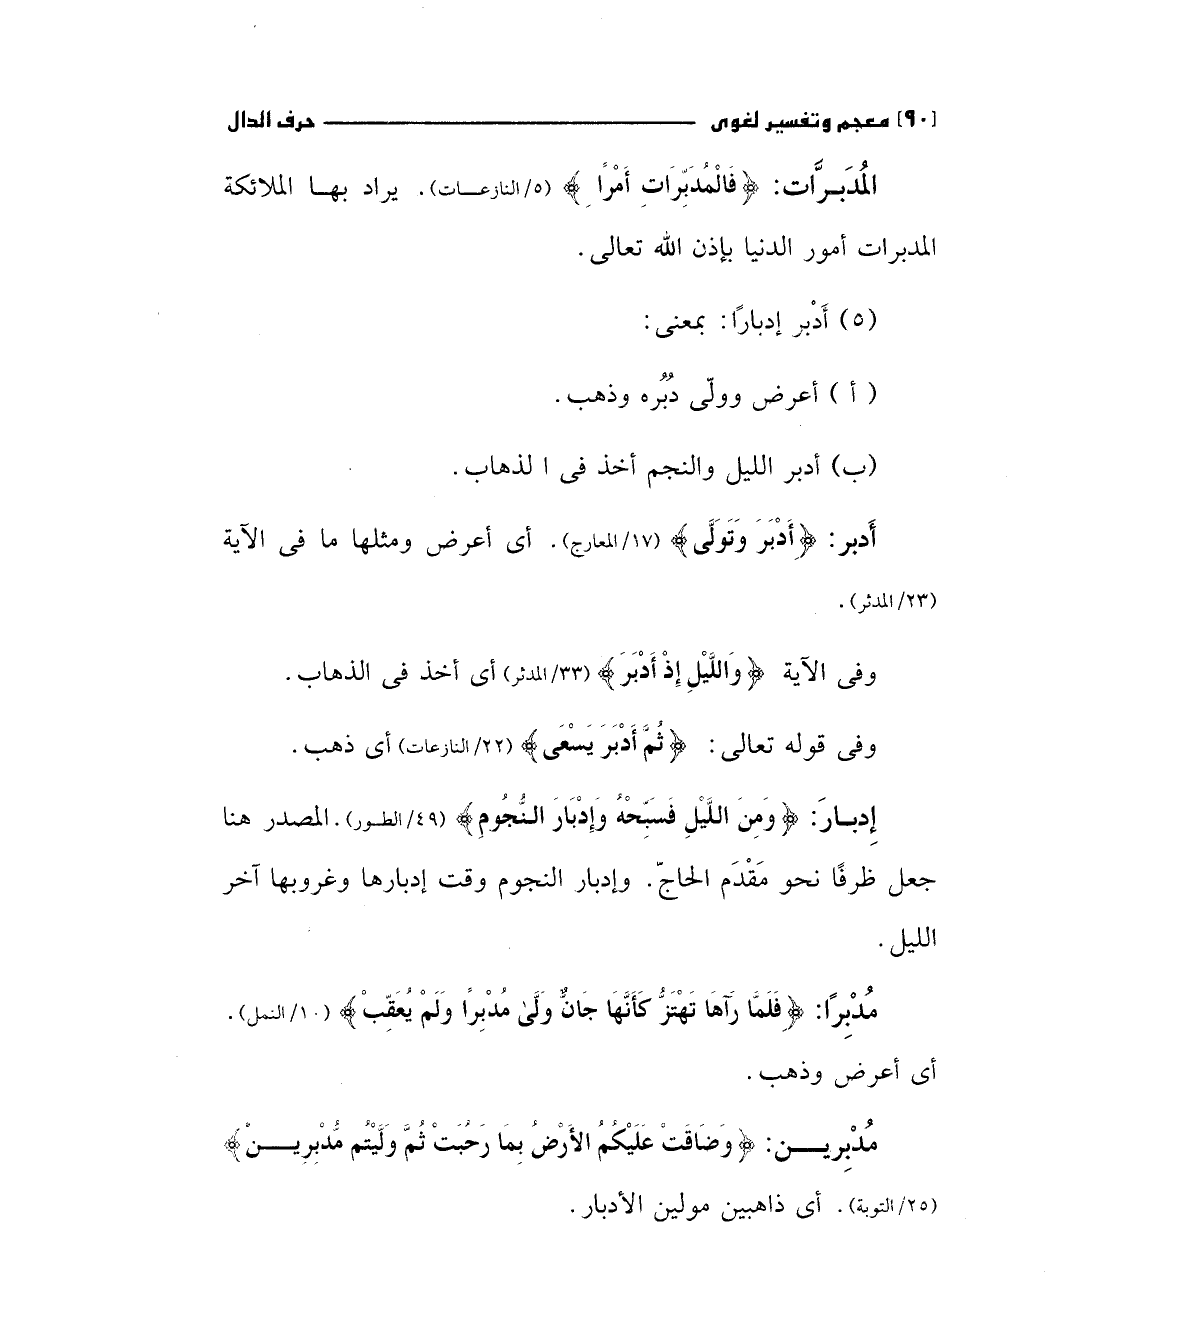 [٩٠] معجم وتفسير لغوى حرف الدال
المُدَبِرَّات: ﴿ فَالْمُدَبِّرَاتِ أَمْرًا ﴾ (٥/ النازعات). يراد بها الملائكة
المدبرات أمور الدنيا بإذن الله تعالى.
(٥) أَدْبر إدبارًا: بمعنى:
( أ ) أعرض وولّى دُبُره وذهب.
(ب) أدبر الليل والنجم أخذ فى ا لذهاب.
أَدبر: ﴿أَدْبَرَ وَتَوَلَّى﴾ (١٧/ المعارج). أى أعرض ومثلها ما فى الآية
(٢٣/ المدثر).
وفى الآية ﴿وَاللَّيْلِ إِذْ أَدْبَرَ﴾ (٣٣/ المدثر) أى أخذ فى الذهاب.
وفى قوله تعالى: ﴿ثُمَّ أَدْبَرَ يَسْعَى﴾ (٢٢/ النازعات) أى ذهب.
إِدبارَ: ﴿وَمِنَ اللَّيْلِ فَسَبِّحْهُ وَإِدْبَارَ النُّجُومِ﴾ (٤٩/ الطور). المصدر هنا
جعل ظرفًا نحو مَقْدَم الحاجّ. وإدبار النجوم وقت إدبارها وغروبها آخر
الليل.
مُدْبِرًا: ﴿فَلَمَّا رَآهَا تَهْتَزُّ كَأَنَّهَا جَانٌّ وَلَّىٰ مُدْبِرًا وَلَمْ يُعَقِّبْ﴾ (١٠/ النمل).
أى أعرض وذهب.
مُدْبِرين: ﴿وَضَاقَتْ عَلَيْكُمُ الأَرْضُ بِمَا رَحُبَتْ ثُمَّ وَلَّيْتُم مُّدْبِرِينَ﴾
(٢٥/ التوبة). أى ذاهبين مولين الأدبار.